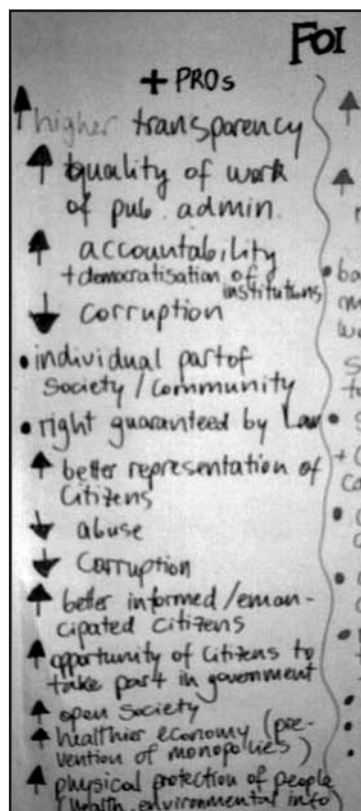 FOI
+ PROs
↑ higher transparency
↑ quality of work
of pub. admin.
↑ accountability
+ democratisation of
institutions
↓ corruption
• individual part of
Society / Community
• right guaranteed by Law
↑ better representation of
Citizens
↓ abuse
↓ Corruption
↑ better informed / eman-
cipated citizens
↑ opportunity of Citizens to
take part in government
↑ open Society
↑ healthier economy (pre-
vention of monopolies)
↑ physical protection of people
(health, environmental info)